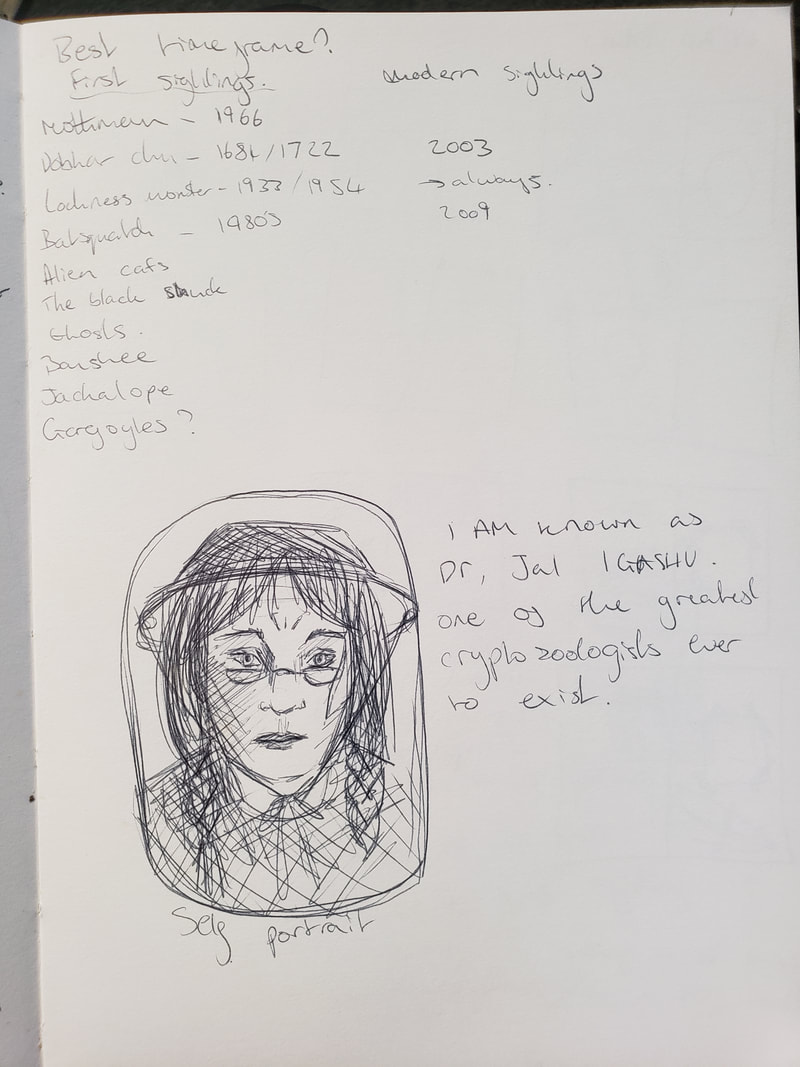 Best timeframe?
First sightings. modern sightings
Mothman - 1966
Dobhar chu - 1684/1722 2003
Lochness monster - 1933/1954 → always.
Batsquatch - 1980s 2009
Alien cats
The black shuck
Ghosts.
Banshee
Jackalope
Gargoyles?
I AM known as
Dr, Jal IGASHU.
one of the greatest
cryptozoologists ever
to exist.
Self portrait